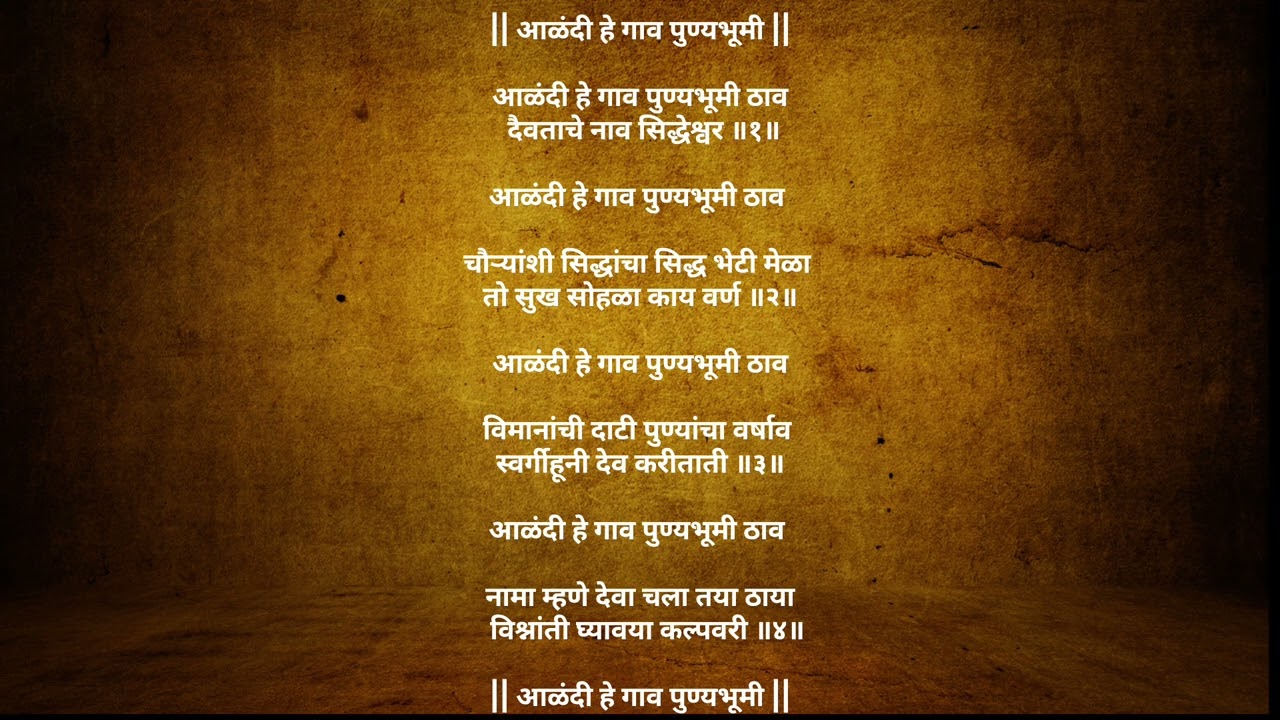 || आळंदी हे गाव पुण्यभूमी ||
आळंदी हे गाव पुण्यभूमी ठाव
दैवताचे नाव सिद्धेश्वर ॥१॥
आळंदी हे गाव पुण्यभूमी ठाव
चौऱ्यांशी सिद्धांचा सिद्ध भेटी मेळा
तो सुख सोहळा काय वर्ण ॥२॥
आळंदी हे गाव पुण्यभूमी ठाव
विमानांची दाटी पुण्यांचा वर्षाव
स्वर्गीहूनी देव करीताती ॥३॥
आळंदी हे गाव पुण्यभूमी ठाव
नामा म्हणे देवा चला तया ठाया
विश्नांती घ्यावया कल्पवरी ॥४॥
|| आळंदी हे गाव पुण्यभूमी ||